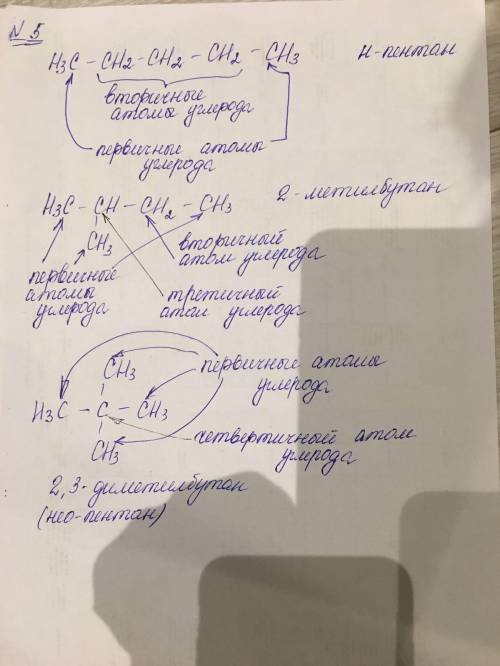 № 5
H₃C – CH2 – CH2 – CH2 – CH3 н-пентан
вторичные
атомы углерода
первичные атомы
углерода
H₃C – CH – CH₂ – CH3 2-метилбутан
CH3
вторичный
атом углерода
первичные
атомы
углерода
третичный
атом углерода
CH3
первичные атомы
углерода
H3C – C – CH3
четвертичный атом
углерода
CH3
2,3-диметилбутан
(нео-пентан)